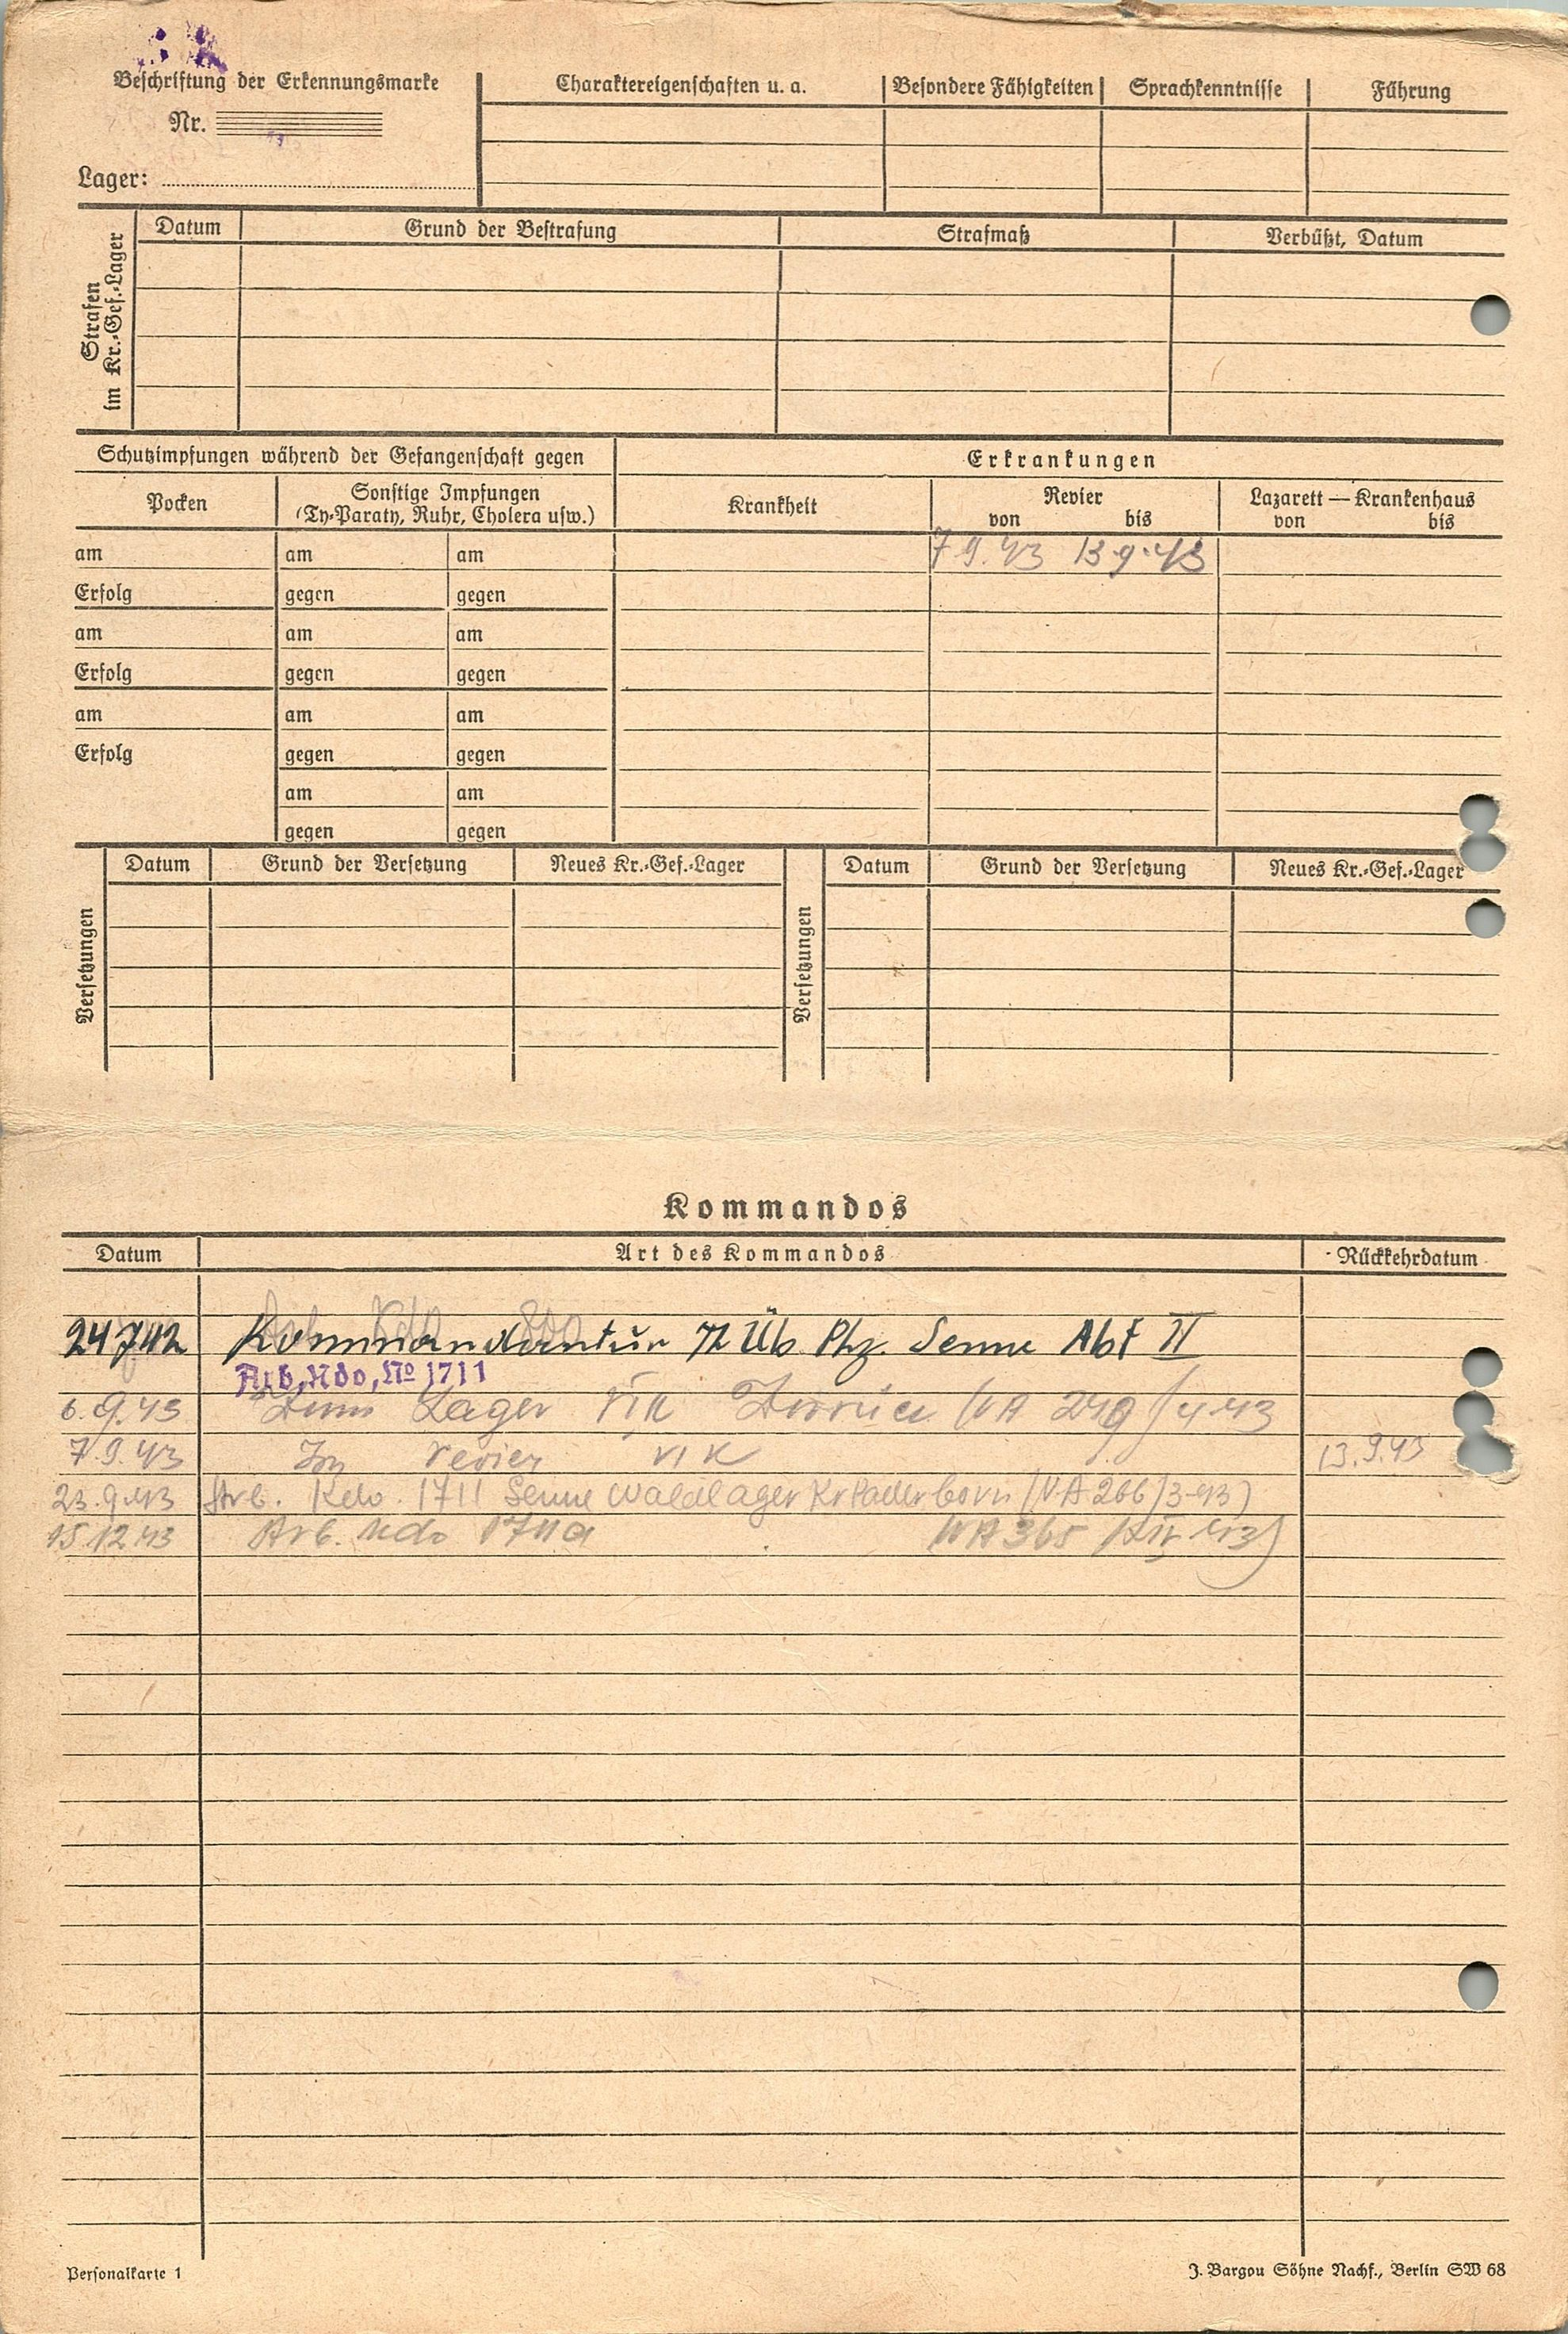 Beschriftung der Erkennungsmarke
Nr.
Lager:
Charaktereigenschaften u. a. Besondere Fähigkeiten Sprachkenntnisse Führung
Strafen im Kr.-Gef.-Lager
Datum Grund der Bestrafung Strafmaß Verbüßt, Datum
Schutzimpfungen während der Gefangenschaft gegen Erkrankungen
Pocken Sonstige Impfungen (Ty-Paraty, Ruhr, Cholera usw.) Krankheit Revier von bis Lazarett — Krankenhaus von bis
am am am 7.9.43 13.9.43
Erfolg gegen gegen
am am am
Erfolg gegen gegen
am am am
Erfolg gegen gegen
am am
gegen gegen
Versetzungen Datum Grund der Versetzung Neues Kr.-Gef.-Lager Versetzungen Datum Grund der Versetzung Neues Kr.-Gef.-Lager
Kommandos
Datum Art des Kommandos Rückkehrdatum
24.7.42 Kommandantur Tr Üb Plz. Senne Abt II
Arb. Kdo. No 1711
6.9.43 Zum Lager VIK Zurück (VA 249/4.43
7.9.43 Im revier VIK 13.9.43
23.9.43 Arb. Kdo. 1711 Senne Waldlager Kr Paderborn (VA 266/3-43)
15.12.43 Arb. Kdo 1711a VA 365 /XII 43)
Personalkarte 1 J. Bargou Söhne Nachf., Berlin SW 68